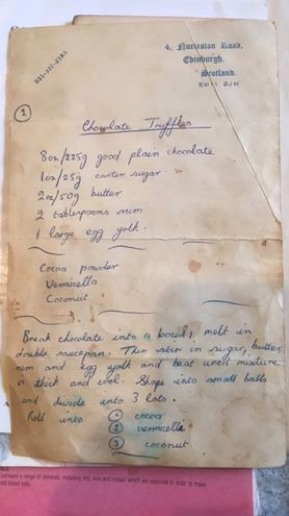 031-337-2383
4, Nucieston Road,
Edinburgh,
Scotland.
1
Chocolate Truffles
8oz/225g good plain chocolate
1oz/25g caster sugar
2oz/50g butter
2 tablespoons rum
1 large egg yolk.
Cocoa powder
Vermicella
Coconut
Break chocolate into a bowl, melt in
double saucepan. Then stir in sugar, butter,
rum and egg yolk and beat until mixture
is thick and cool. Shape into small balls
and divide into 3 lots.
Roll into 1 cocoa
2 vermicelli
3 coconut